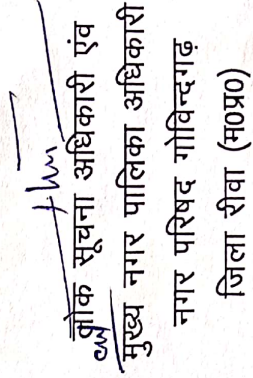 लोक सूचना अधिकारी एवं
मुख्य नगर पालिका अधिकारी
नगर परिषद गोविन्दगढ़
जिला रीवा (म0प्र0)